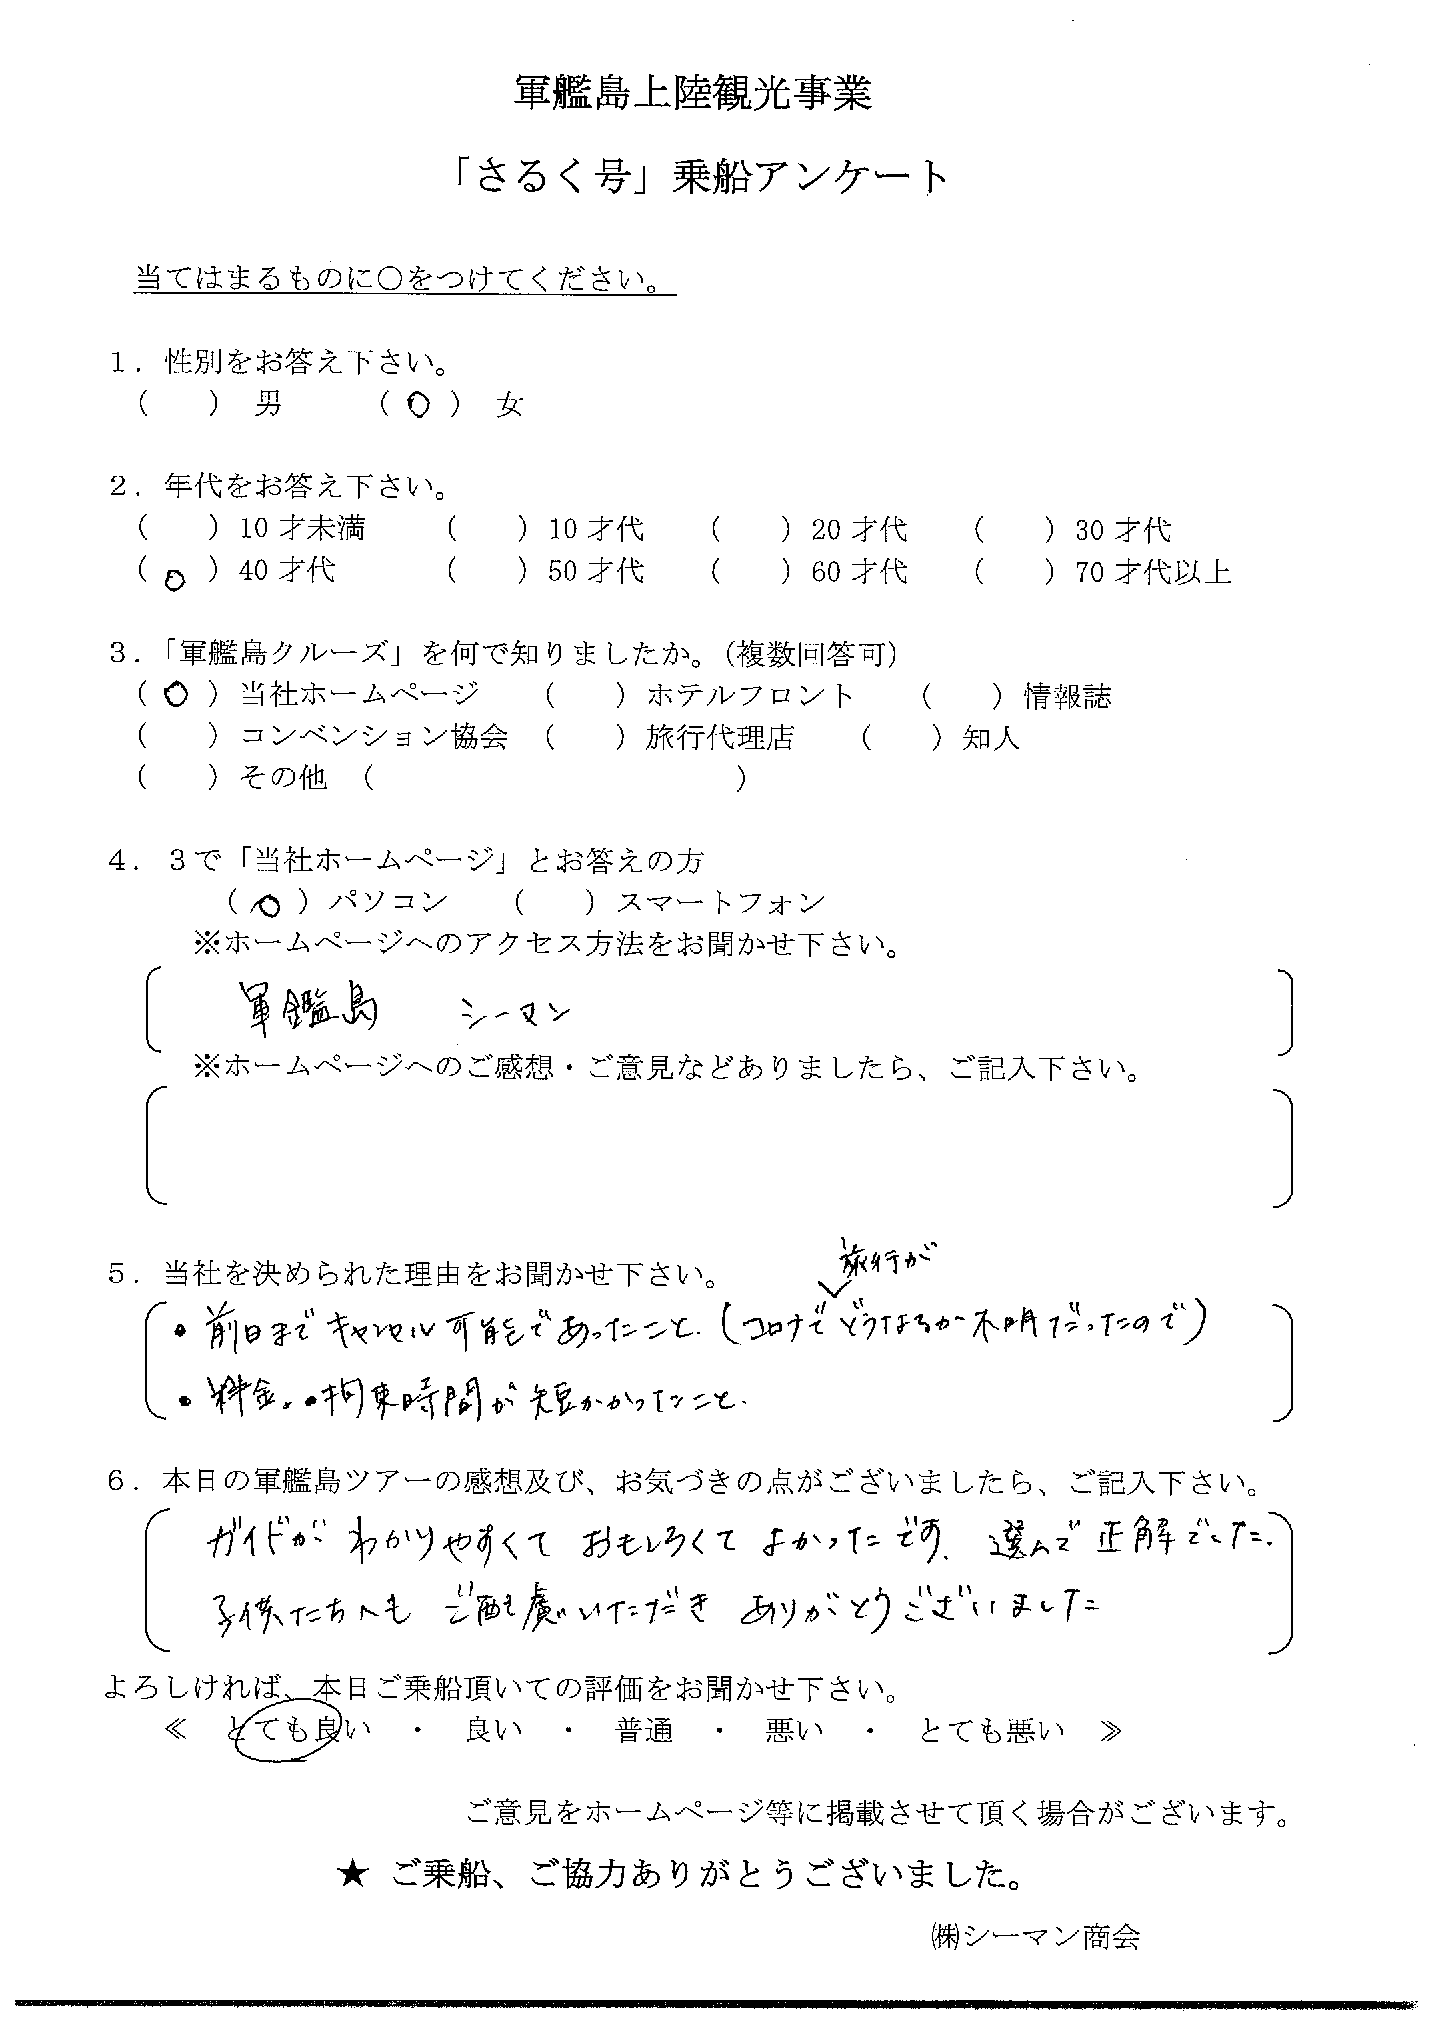 軍艦島上陸観光事業
「さるく号」乗船アンケート
当てはまるものに○をつけてください。
１．性別をお答え下さい。
（　　）男　　（ ○ ）女
２．年代をお答え下さい。
（　　）10 才未満　　（　　）10 才代　　（　　）20 才代　　（　　）30 才代
（ ○ ）40 才代　　（　　）50 才代　　（　　）60 才代　　（　　）70 才代以上
３．「軍艦島クルーズ」を何で知りましたか。（複数回答可）
（ ○ ）当社ホームページ　　（　　）ホテルフロント　　（　　）情報誌
（　　）コンベンション協会　（　　）旅行代理店　　（　　）知人
（　　）その他　（　　　　　　　　）
４．３で「当社ホームページ」とお答えの方
（ ○ ）パソコン　　（　　）スマートフォン
※ホームページへのアクセス方法をお聞かせ下さい。
軍艦島　シーマン
※ホームページへのご感想・ご意見などありましたら、ご記入下さい。
５．当社を決められた理由をお聞かせ下さい。
旅行が
・前日までキャンセル可能であったこと.（コロナでどうなるか不明だったので）
・料金.・拘束時間が短かかったこと.
６．本日の軍艦島ツアーの感想及び、お気づきの点がございましたら、ご記入下さい。
ガイドが わかりやすくて おもしろくて よかったです. 選んで 正解でした.
子供たちへも ご配慮いただき ありがとうございました
よろしければ、本日ご乗船頂いての評価をお聞かせ下さい。
≪　とても良い　・　良い　・　普通　・　悪い　・　とても悪い　≫
ご意見をホームページ等に掲載させて頂く場合がございます。
★ ご乗船、ご協力ありがとうございました。
㈱シーマン商会